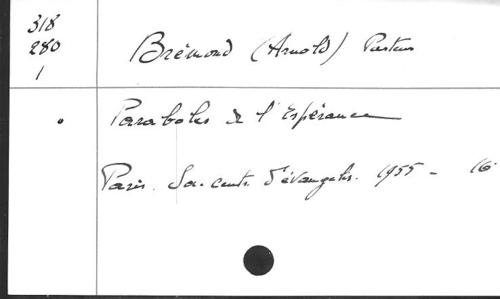 318
280
1
Brémond (Arnold) Pasteur
Paraboles de l'Espérance
Paris. Soc. cent. d'évangélis. 1955 - 16°